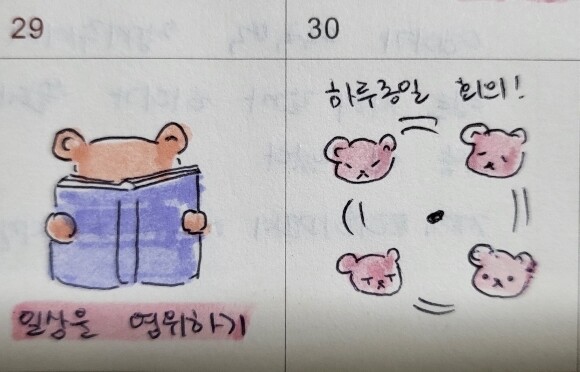 29
30
하루종일 회의!
일상을 영위하기